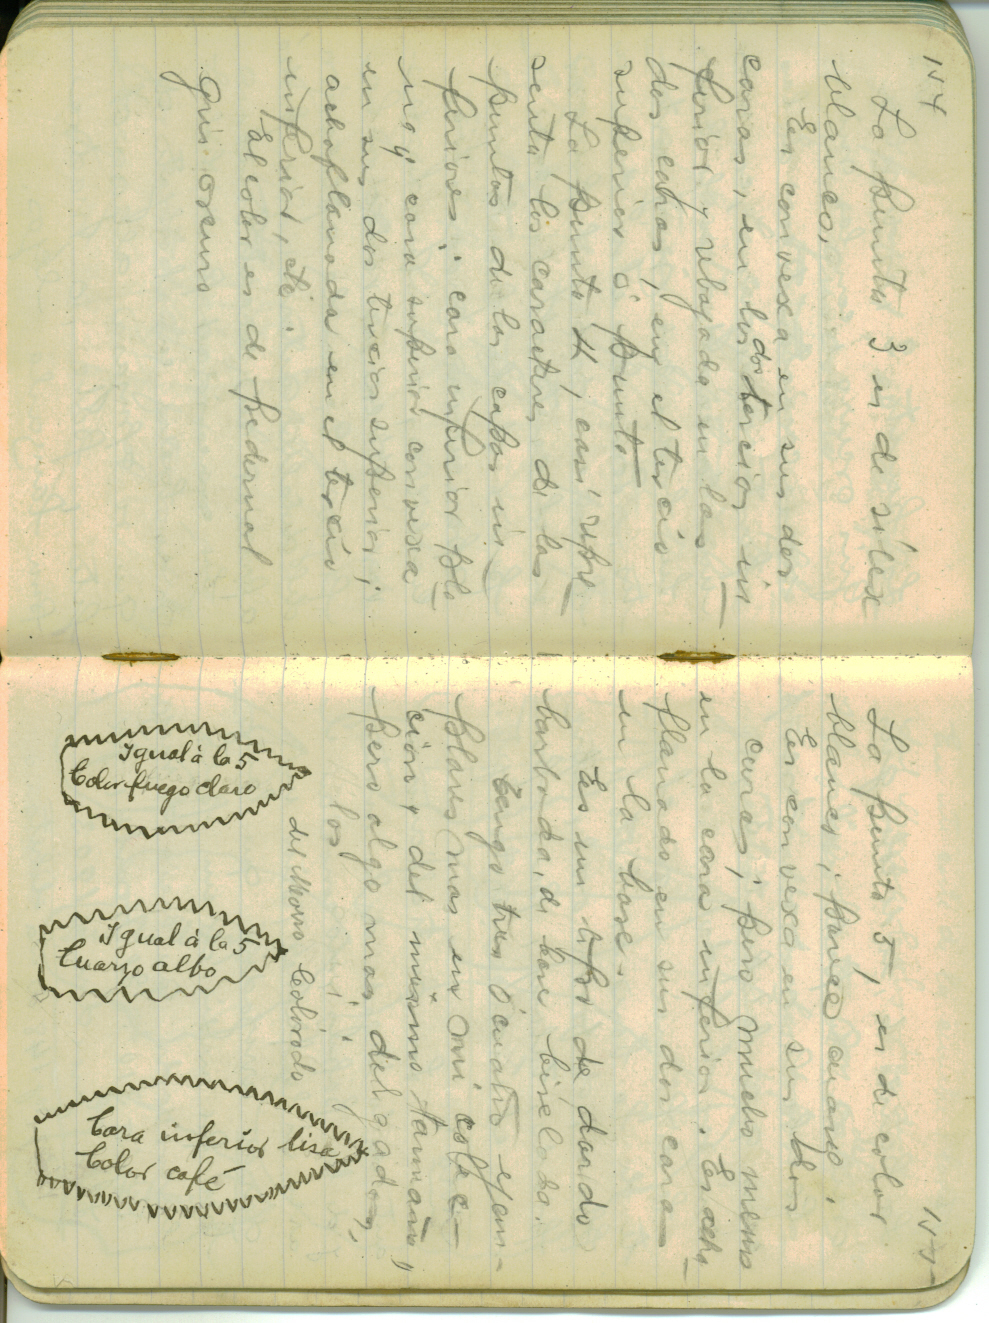 154
La punta 3 es de sílex
blanco,
Es convexa en sus dos
caras, en los dos tercios in
ferior y rebajada en las
dos caras, en el tercio
superior ó punta
La punta 4, casi repre
senta los caracteres de las
puntas de las capas in
feriores: cara inferior pla
na y cara superior convexa
en sus dos tercios superior;
achaflanada en el tercio
inferior, etc.
El color es de pedernal
gris oscuro
155
La punta 5, es de color
blanco; parece cuarzo.
Es convexa en sus dos
caras; pero mucho menos
en la cara inferior. Es acha
flanada en sus dos caras
en la base.
Es un tipo de dardo
barbada, de base biselada.
Tengo tres ó cuatro ejem-
plares mas en mi colec-
ción, del mismo tamaño,
pero algo mas delgados,
los
del Morro Colorado
Igual à la 5
Color fuego claro
Igual à la 5
Cuarzo albo
Cara inferior lisa
Color café